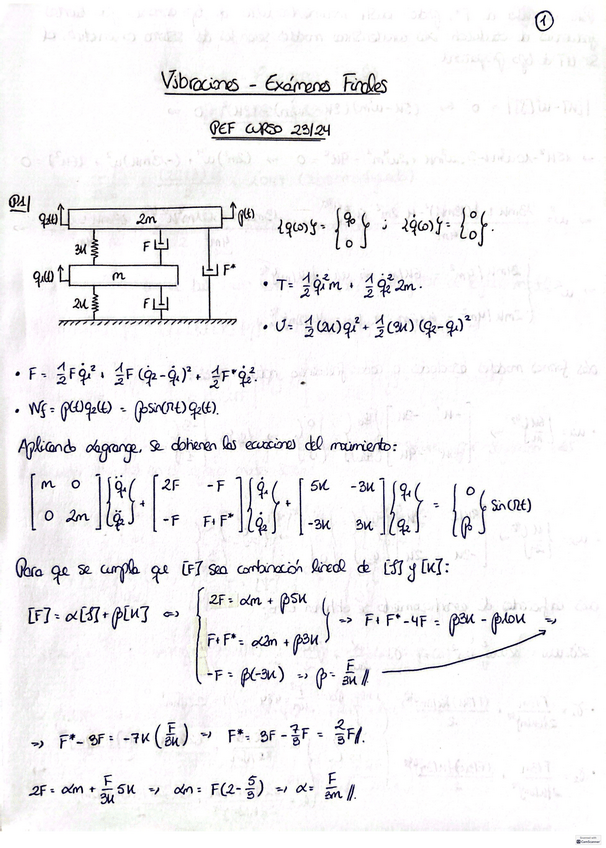 1
Vibraciones - Exámenes Finales
PEF CURSO 23/24
P1
q2(t) 2m p(t)
3K F F*
q1(t) m
2K F
{q(0)} = {q0 0} ; {q̇(0)} = {0 0}.
• T = 1/2 q̇1² m + 1/2 q̇2² 2m.
• U = 1/2 (2K) q1² + 1/2 (3K) (q2-q1)²
• F = 1/2 F q̇1² + 1/2 F (q̇2 - q̇1)² + 1/2 F* q̇2².
• Wf = p(t) q2(t) = p0 sin(Ωt) q2(t).
Aplicando Lagrange, se obtienen las ecuaciones del movimiento:
[m 0; 0 2m] {q̈1 q̈2} + [2F -F; -F F+F*] {q̇1 q̇2} + [5K -3K; -3K 3K] {q1 q2} = {0 p0} sin(Ωt)
Para que se cumpla que [F] sea combinación lineal de [J] y [K]:
[F] = α[J] + β[K] ⇔ { 2F = αm + β5K
F+F* = α2m + β3K ⇒ F + F* - 4F = β3K - β10K ⇒
-F = β(-3K) ⇒ β = F/3K //
⇒ F* - 3F = -7K (F/3K) ⇒ F* = 3F - 7/3 F = 2/3 F //.
2F = αm + F/3K 5K ⇒ αm = F(2 - 5/3) ⇒ α = F/3m //.
CamScanner